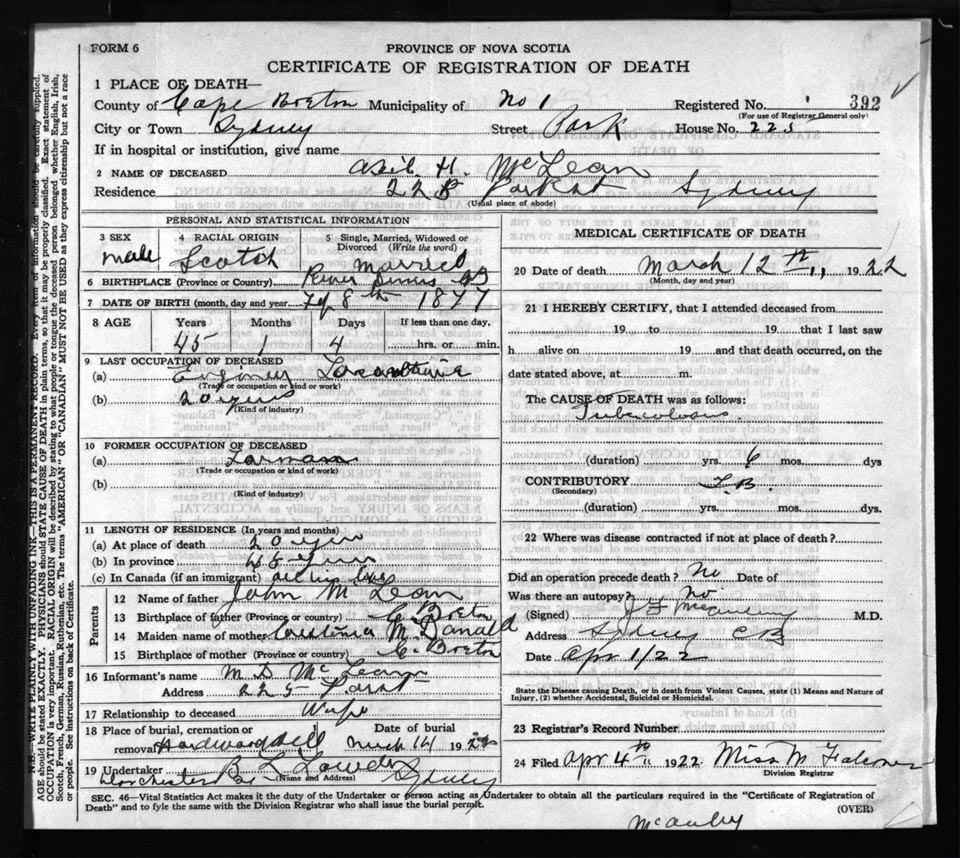 FORM 6
PROVINCE OF NOVA SCOTIA
CERTIFICATE OF REGISTRATION OF DEATH
1 PLACE OF DEATH—
County of Cape Breton Municipality of No 1 Registered No. 392
(For use of Registrar General only)
City or Town Sydney Street Park House No. 225
If in hospital or institution, give name
2 NAME OF DECEASED H. McLean
Residence 225 Park St Sydney
(Usual place of abode)
PERSONAL AND STATISTICAL INFORMATION
3 SEX male
4 RACIAL ORIGIN Scotch
5 Single, Married, Widowed or Divorced (Write the word) Married
6 BIRTHPLACE (Province or Country) River CB
7 DATE OF BIRTH (month, day and year) 8th 1877
8 AGE Years Months Days If less than one day,
45 1 4 hrs. or min.
9 LAST OCCUPATION OF DECEASED
(a)
(Trade or occupation or kind of work)
(b) 20 years
(Kind of industry)
10 FORMER OCCUPATION OF DECEASED
(a)
(Trade or occupation or kind of work)
(b)
(Kind of industry)
11 LENGTH OF RESIDENCE (In years and months)
(a) At place of death 20 years
(b) In province 45 years
(c) In Canada (if an immigrant) all his life
Parents
12 Name of father John McLean
13 Birthplace of father (Province or country) C. Breton
14 Maiden name of mother McDonald
15 Birthplace of mother (Province or country) C. Breton
16 Informant's name M. D. McLean
Address 225 Park St
17 Relationship to deceased Wife
18 Place of burial, cremation or removal Hardwood Hill Date of burial March 14 1922
19 Undertaker Dorchester St Sydney
(Name and Address)
MEDICAL CERTIFICATE OF DEATH
20 Date of death March 12th 1922
(Month, day and year)
21 I HEREBY CERTIFY, that I attended deceased from
19 to 19 that I last saw
h alive on 19 and that death occurred, on the
date stated above, at m.
The CAUSE OF DEATH was as follows:
Tuberculosis
(duration) yrs. 6 mos. dys
CONTRIBUTORY T.B.
(Secondary)
(duration) yrs. mos. dys.
22 Where was disease contracted if not at place of death?
Did an operation precede death? No Date of
Was there an autopsy? No
(Signed) M.D.
Address Sydney CB
Date Apr 1/22
State the Disease causing Death, or in death from Violent Causes, state (1) Means and Nature of Injury, (2) whether Accidental, Suicidal or Homicidal.
23 Registrar's Record Number
24 Filed Apr 4th 1922 Miss M
Division Registrar
SEC. 46—Vital Statistics Act makes it the duty of the Undertaker or person acting as Undertaker to obtain all the particulars required in the "Certificate of Registration of
Death" and to fyle the same with the Division Registrar who shall issue the burial permit.
(OVER)
N.B.—WRITE PLAINLY WITH UNFADING INK—THIS IS A PERMANENT RECORD. Every item of information should be carefully supplied.
AGE should be stated EXACTLY. PHYSICIANS should STATE CAUSE OF DEATH in plain terms, so that it may be properly classified. Exact statement of
OCCUPATION is very important. RACIAL ORIGIN will be described by stating to what people or tongue the deceased person belonged whether English, Irish,
Scotch, French, German, Russian, Ruthenian, etc. The terms "AMERICAN" OR "CANADIAN" MUST NOT BE USED as they express citizenship but not a race
or people. See instructions on back of Certificate.